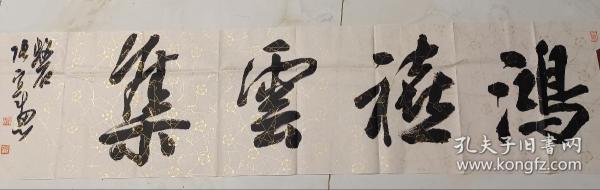 鸿禧雲集
孔夫子旧書網
www.kongfz.com